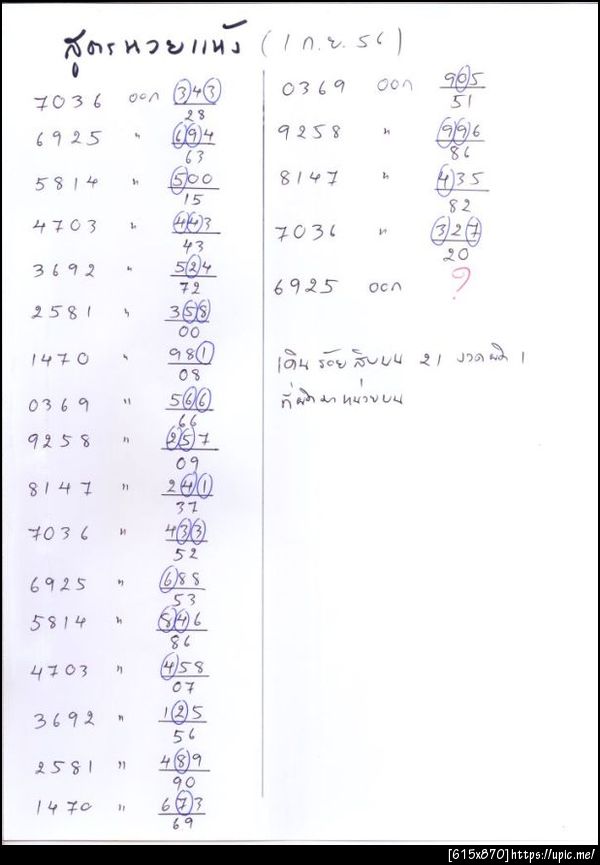 สูตรหวยแห้ง (1 ก.ย. 56)
7036 ออก 343
28
6925 " 694
63
5814 " 500
15
4703 " 443
43
3692 " 524
72
2581 " 358
00
1470 " 981
08
0369 " 566
66
9258 " 257
09
8147 " 241
37
7036 " 433
52
6925 " 688
53
5814 " 846
86
4703 " 458
07
3692 " 125
56
2581 " 489
90
1470 " 673
69
0369 ออก 905
51
9258 " 996
86
8147 " 435
82
7036 " 327
20
6925 ออก ?
เดิน ร้อย สิบบน 21 งวดผิด 1
ที่ผิดมาหน่วยบน
[615x870]https://upic.me/